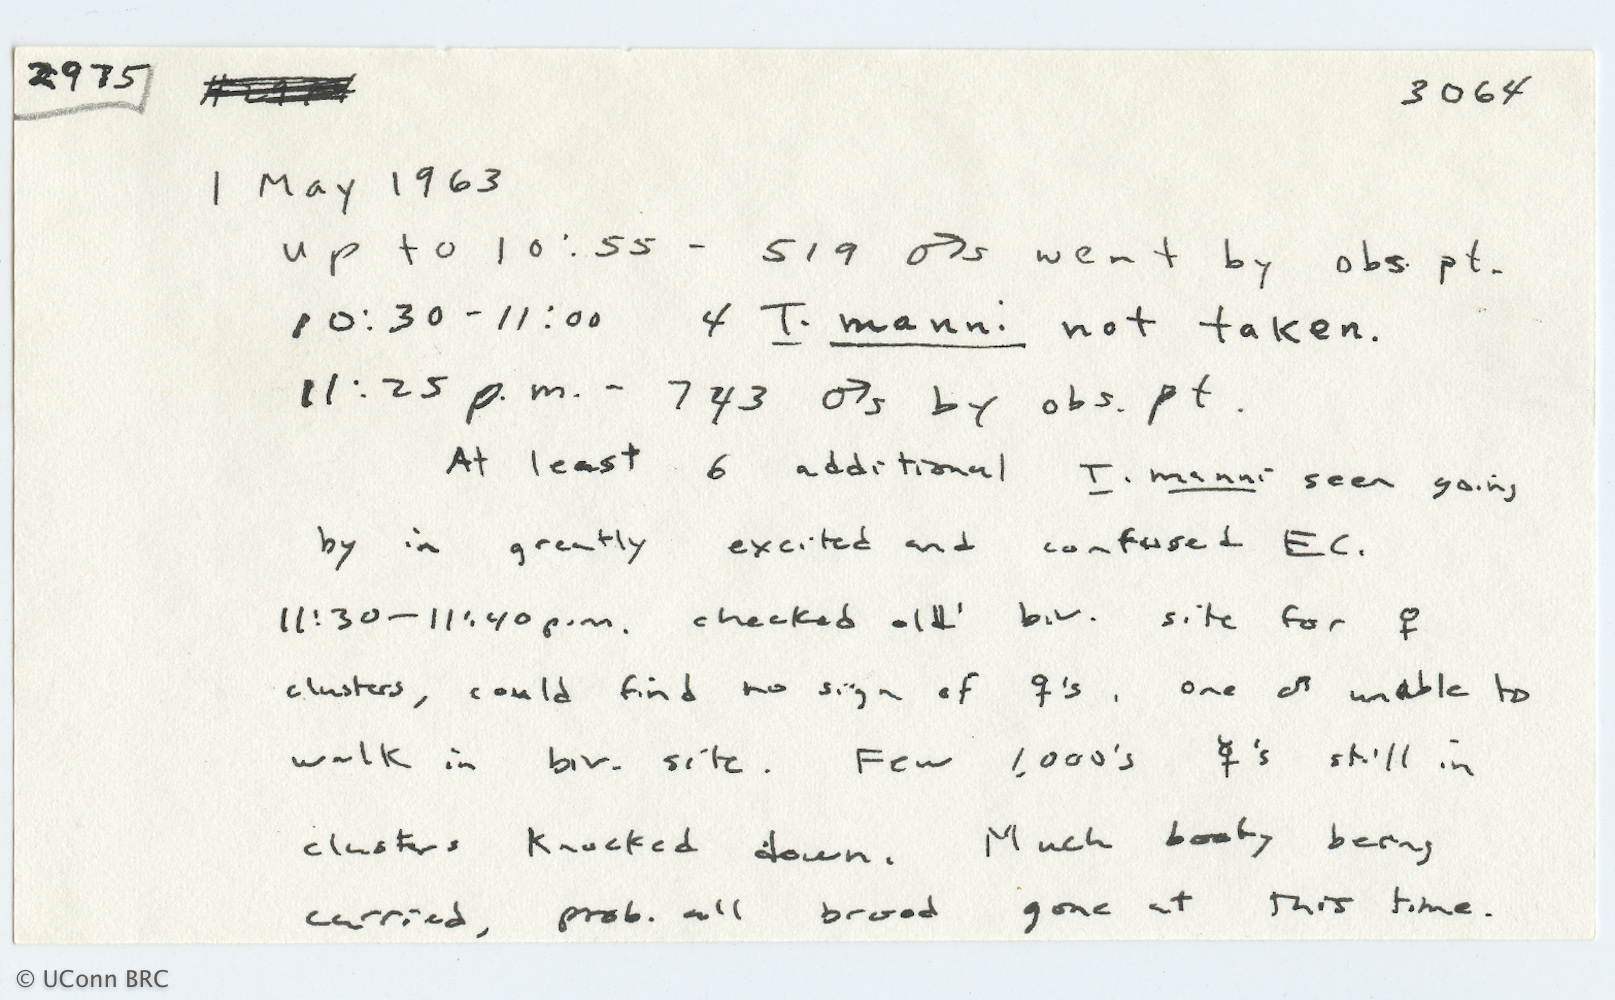 2975 3064
1 May 1963
up to 10:55 - 519 ♂s went by obs. pt.
10:30-11:00 4 T. manni not taken.
11:25 p.m. - 743 ♂s by obs. pt.
At least 6 additional T. manni seen going
by in greatly excited and confused EC.
11:30-11:40 p.m. checked old biv. site for ♀
clusters, could find no sign of ♀'s, one ♂ unable to
walk in biv. site. Few 1,000's ☿'s still in
clusters knocked down. Much booty being
carried, prob. all brood gone at this time.
© UConn BRC